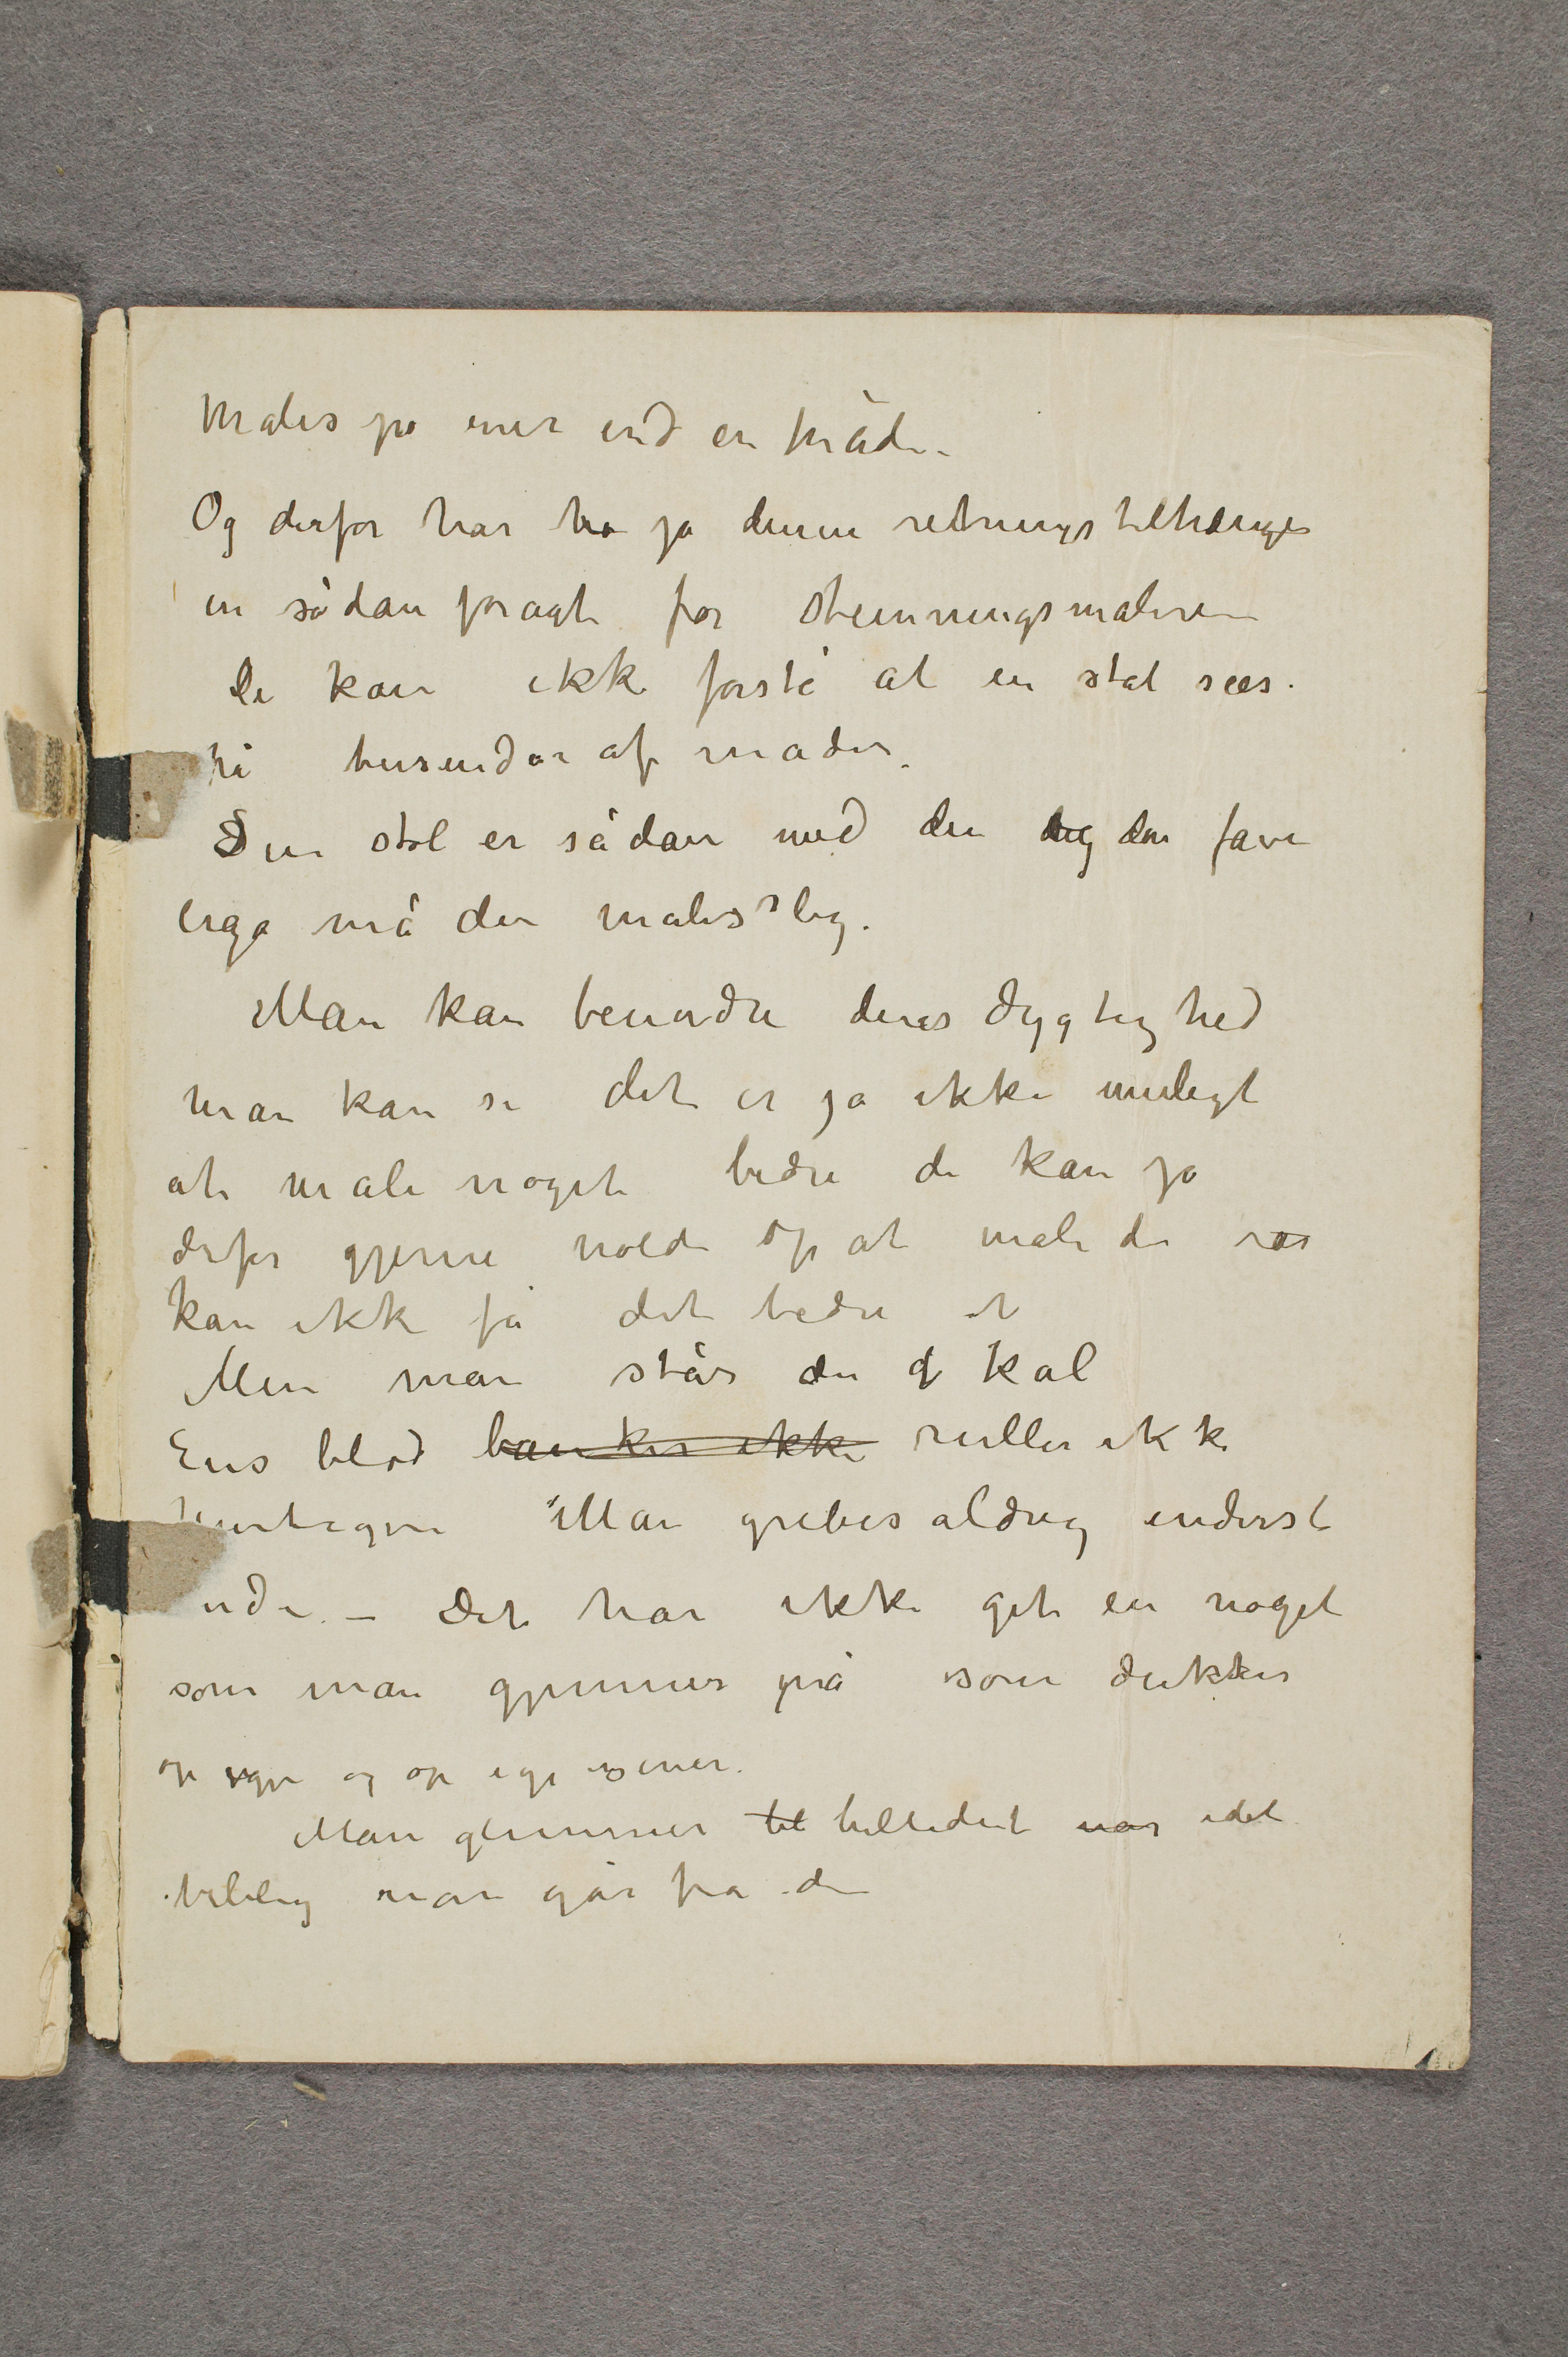 Males på mer end en måde.
Og derfor har ja denne retnings tilhænger
en sådan foragt for stemningsmaleren
De kan ikke forstå at en stol sees
på tusender af måder.
Den stol er sådan med den og den farve
ergo må den males slig.
Man kan beundre deres dygtighed
man kan si det er ja ikke muligt
at male noget bedre de kan ja
derfor gjerne holde op at male de
kan ikke få det bedre t
Men man står der kal
Ens blod banker ikke ruller ikke
hurtigere Man gribes aldrig inderst
inde. – Det har ikke git en noget
som man gjemmer på som dukker
op igjen og op igjen siden.
Man glemmer bil billedet når idet
man går fra det